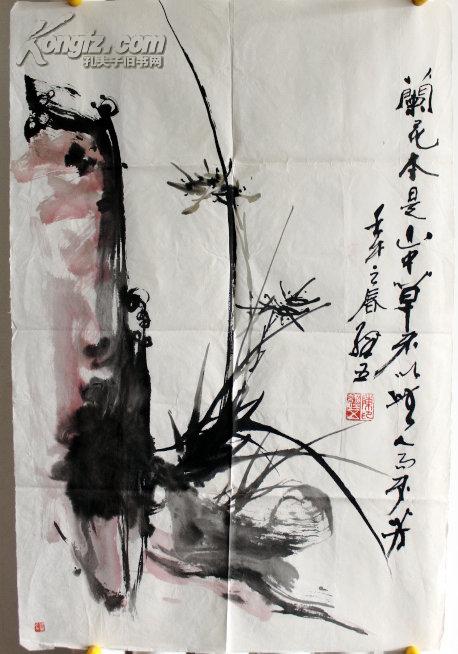 Kongfz.com
孔夫子旧书网
蘭花本是山中草不以無人而不芳
壬午之春